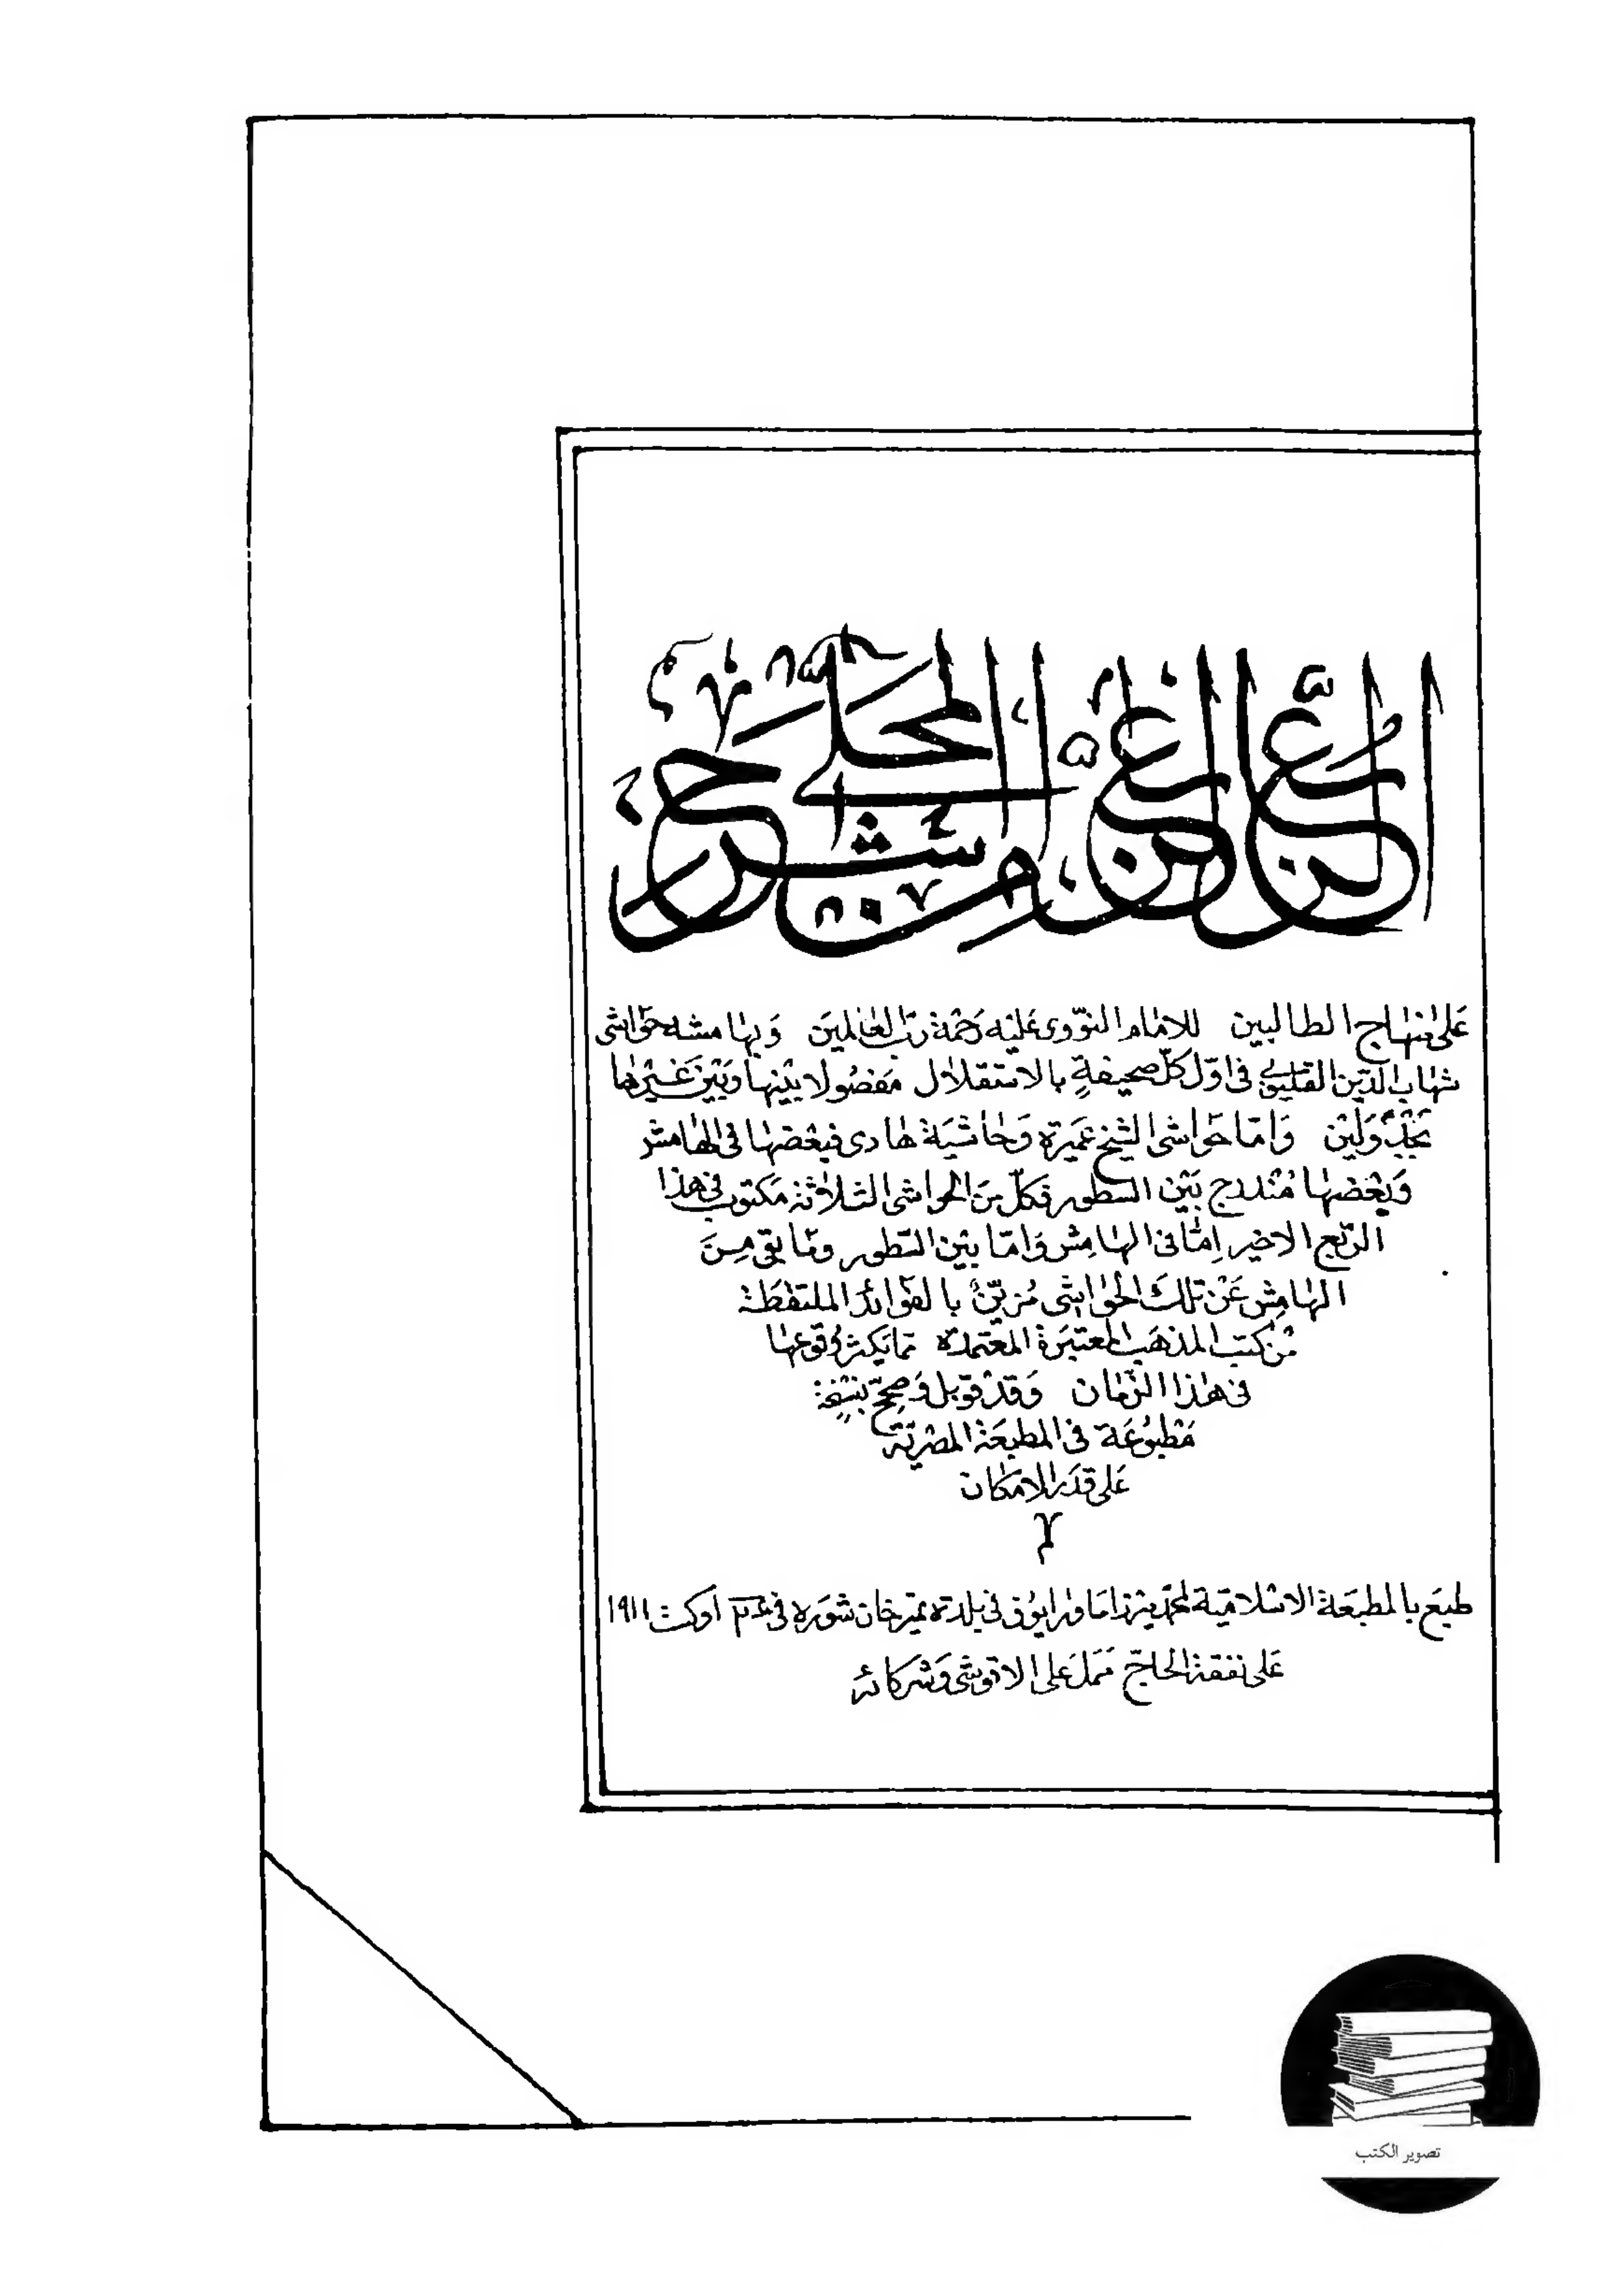 الربع الاخير من شرح المحلي
على منهاج الطالبين للامام النووى عليه رحمة رب العالمين وبهامشه حواشى
شهاب الدين القليوبى فى اول كل صحيفة بالاستقلال مفصولا بينها وبين غيرها
بجدولين واما حواشى الشيخ عميرة وحاشية هادى فبعضها فى الهامش
وبعضها مندرج بين السطور فكل من الحواشى الثلاثة مكتوب فى هذا
الربع الاخير اما فى الهامش واما بين السطور وما بقى من
الهامش عن تلك الحواشى مزين بالفوائد الملتقطة
من كتب المذهب المعتبرة المعتمدة مما يكثر وقوعها
فى هذا الزمان وقد قوبل وصحح بنسخة
مطبوعة فى المطبعة المصرية
على قدر الامكان
طبع بالمطبعة الاسلامية لمحمد ميرزا ماورايوف فى بلدة تمير خان شوره فى اوكت ١٩١١
على نفقة الحاج على الاقوشى وشركائه
تصوير الكتب